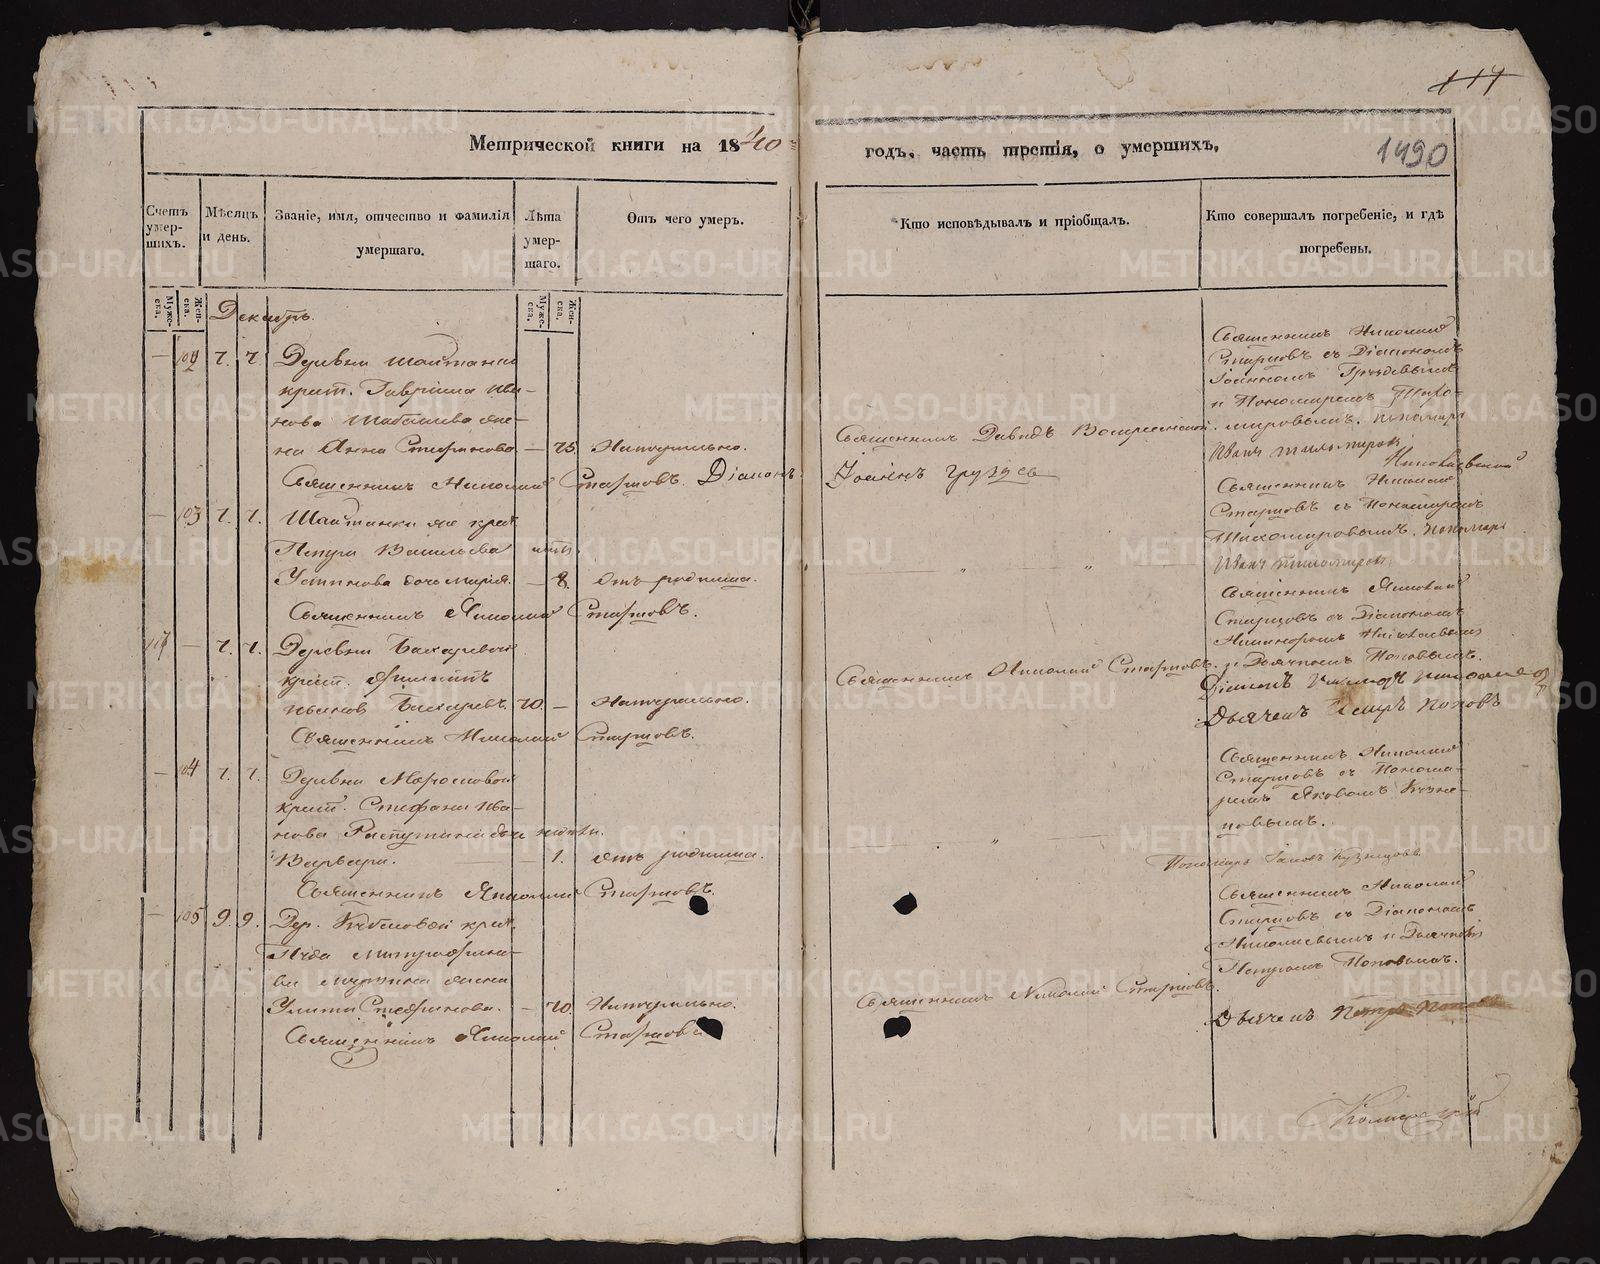 114
Метрической книги на 1840
годъ, часть третія, о умершихъ,
1490
Счетъ умер-шихъ.
Мѣсяцъ и день.
Званіе, имя, отчество и фамилія умершаго.
Лѣта умер-шаго.
Отъ чего умеръ.
Кто исповѣдывалъ и пріобщалъ.
Кто совершалъ погребеніе, и гдѣ погребены.
Муже-ска.
Жен-ска.
Муже-ска.
Жен-ска.
Декабрь.
— 102 7. 7. Деревни Шайтанки
крест. Гавріила Ива-
нова жена
Анна Стефанова — 75. Натурально.
Священникъ Давидъ Воскресенской.
Священникъ Николай
Старцовъ съ Діакономъ
Іоанномъ Груздевымъ
и Пономаремъ Тихо-
мировымъ. Пономарь
Иванъ Тихомировъ
Священникъ Николай Старцовъ. Діаконъ Іоаннъ Груздевъ
— 103 7. 7. Шайтанки же крест.
Петра Васильева
Устинова дочь Марія. — 8. Отъ родимца.
Священникъ Николай
Старцовъ съ Пономаремъ
Тихомировымъ. Пономарь
Иванъ Тихомировъ
Священникъ Николай Старцовъ.
117 — 7. 7. Деревни Бахаревой
крест. Филиппъ
Ивановъ Бахаревъ. 70. — Натурально.
Священникъ Николай Старцовъ.
Священникъ Николай
Старцовъ съ Діакономъ
Никаноромъ Николаевымъ
и Дьячкомъ Поповымъ.
Дьячекъ Петръ Поповъ
Священникъ Николай Старцовъ.
— 104 7. 7. Деревни
крест. Стефана Ива-
нова Распутина дочь
Варвара. — 1. Отъ родимца.
Священникъ Николай
Старцовъ съ Понома-
ремъ Яковомъ Кузне-
цовымъ.
Пономарь Іаковъ Кузнецовъ
Священникъ Николай Старцовъ.
— 105 9. 9. Дер. крест.
жена
Улита Стефанова. — 70. Натурально.
Священникъ Николай Старцовъ.
Священникъ Николай
Старцовъ съ Діакономъ
Николаевымъ и Дьячкомъ
Петромъ Поповымъ.
Дьячекъ Петръ Поповъ
Священникъ Николай Старцовъ